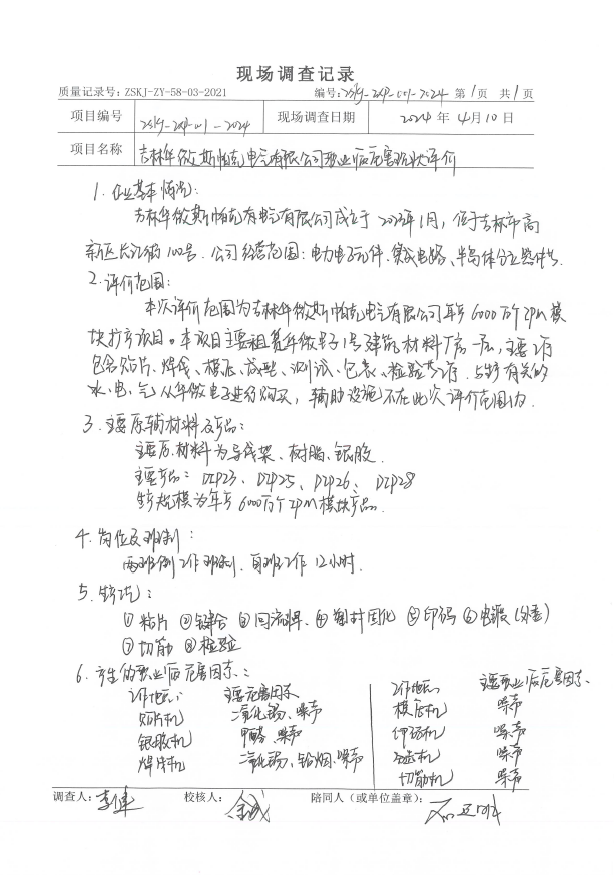 现场调查记录
质量记录号：ZSKJ-ZY-58-03-2021 编号：ZSKJ-ZXP-001-2024 第1页 共1页
项目编号 ZSKJ-ZXP-001-2024 现场调查日期 2024年4月10日
项目名称 吉林华微斯帕克电气有限公司职业病危害现状评价
1. 企业基本情况：
吉林华微斯帕克电气有限公司成立于 年1月，位于吉林市高
新区长江街100号. 公司经营范围：电力电子元件、集成电路、半导体分立器件等.
2. 评价范围：
本次评价范围为吉林华微斯帕克电气有限公司年产6000万个IPM模
块扩产项目。本项目主要租赁华微电子1号建筑材料厂房一层，主要工作
包含贴片、焊线、模压、成型、测试、包装、检验等工作. 与生产有关的
水、电、气从华微电子进行购买，辅助设施不在此次评价范围内.
3. 主要原辅材料及产品：
主要原材料为导线架、树脂、银胶.
主要产品：DIP23、DIP25、DIP26、DIP28
生产规模为年产6000万个IPM模块产品.
4. 岗位及班制：
两班倒工作班制. 每班工作12小时.
5. 生产工艺：
①粘片 ②键合 ③回流焊 ④塑封固化 ⑤印码 ⑥电镀（外委）
⑦切筋 ⑧检验
6. 产生的职业病危害因素：
工作地点： 主要危害因素 工作地点： 主要职业病危害因素.
贴片机 二氧化锡、噪声 模压机 噪声
银胶机 甲醛、噪声 印码机 噪声
焊线机 二氧化锡、铅烟、噪声 噪声
切筋机 噪声
调查人：李伟 校核人： 陪同人（或单位盖章）：